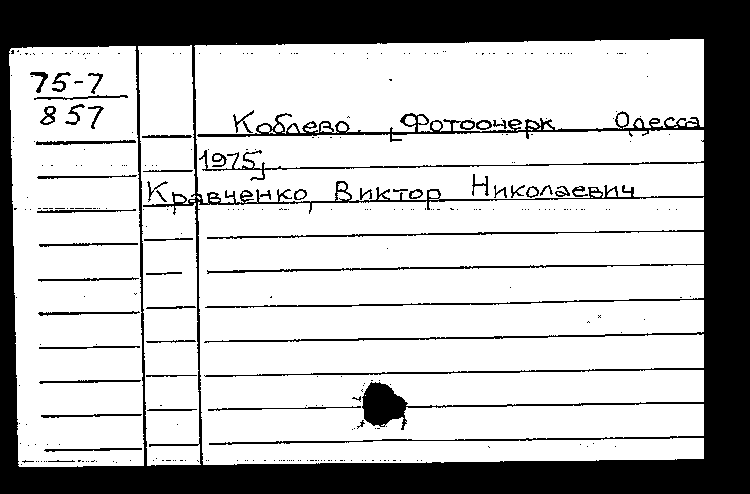 75-7
857
Коблево. [Фотоочерк Одесса
1975].
Кравченко, Виктор Николаевич